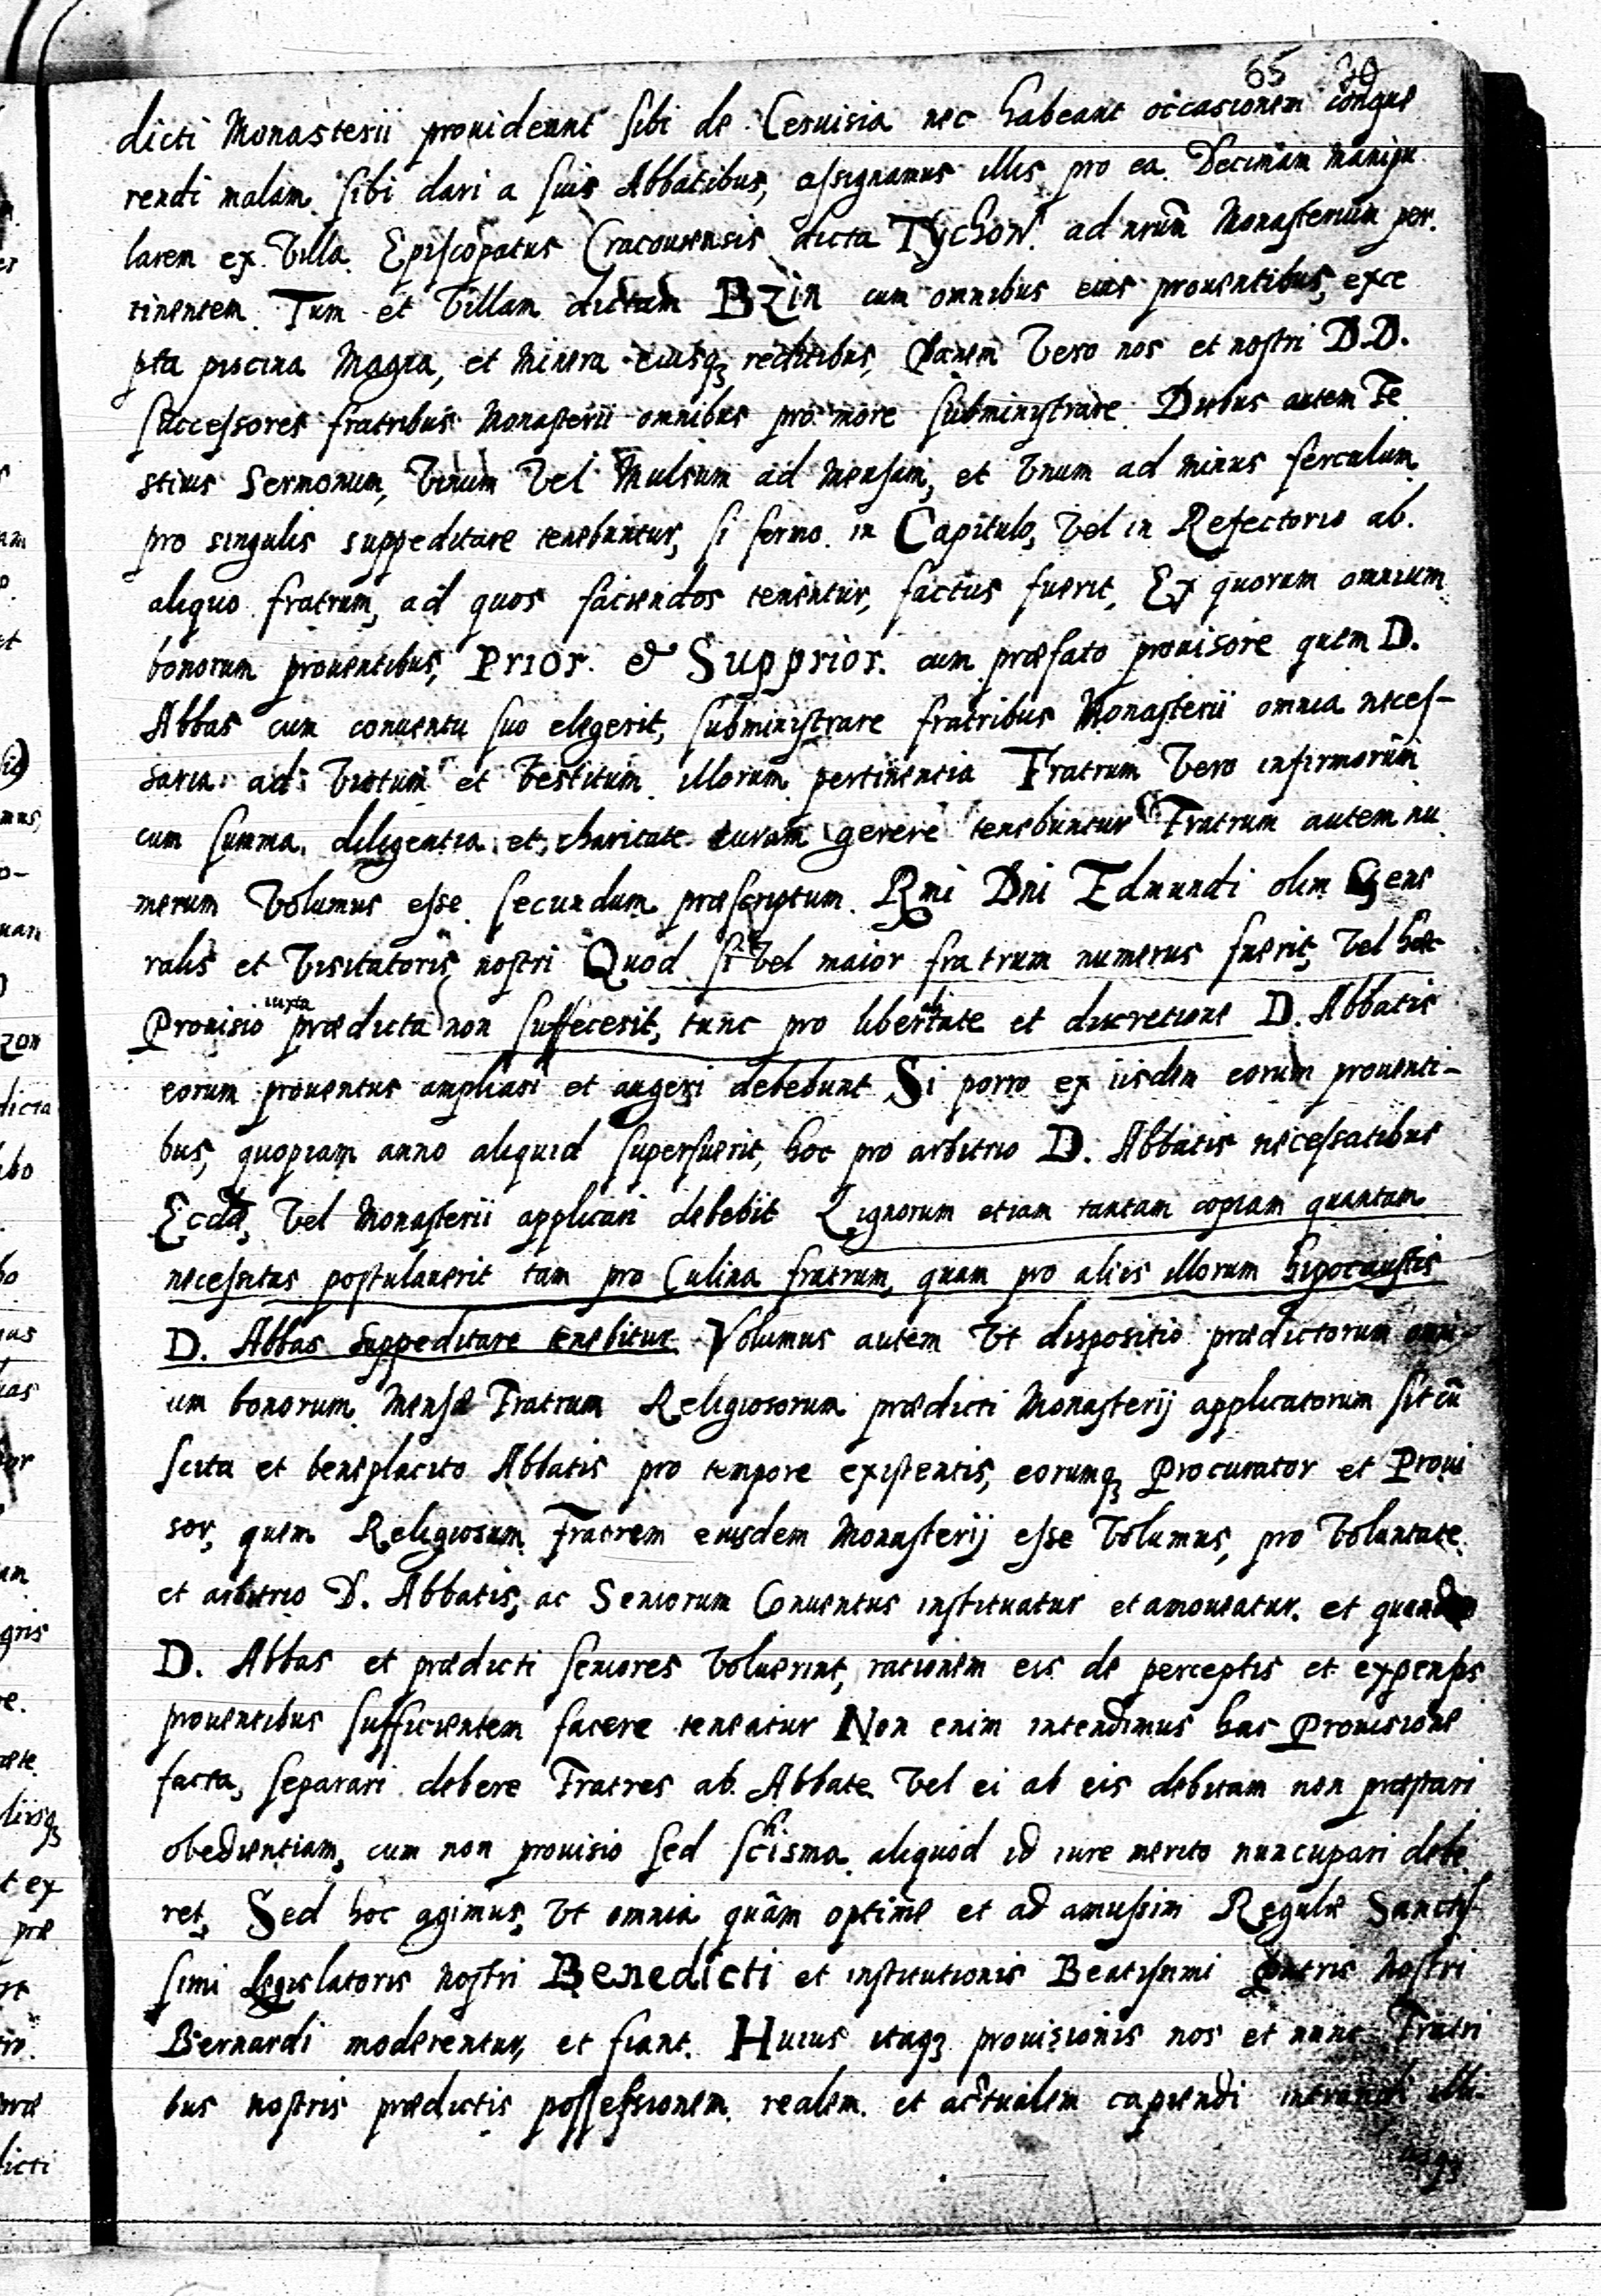 65 30
dicti Monasterii prouideant sibi de Ceruisia nec habeant occasionem conque
rendi malam sibi dari a suis Abbatibus, assignamus illis pro ea Decimam manipu
larem ex Villa Episcopatus Cracouiensis dicta Tychow. ad nrum Monasterium per.
tinentem Tum et Villam dictam Bzin cum omnibus eius prouentibus, exce
pta piscina Magna, et Minera eiusq3 reditibus, Panem Vero nos et nostri D.D.
successores fratribus Monasterii omnibus pro more subministrare Duobus autem Fe
stiuis Sermonum, Vinum Vel Mulsum ad Mensam, et Vnum ad minus ferculum
pro singulis suppeditare tenebuntur, si sermo in Capitulo, Vel in Refectorio ab.
aliquo fratrum, ad quos faciendos tenentur, factus fuerit, Ex quorum omnium
bonorum prouentibus, Prior. & Supprior. cum præfato prouisore quem D.
Abbas cum conuentu suo elegerit, subministrare fratribus Monasterii omnia neces-
saria ad Victum et Vestitum illorum pertinentia Fratrum Vero infirmorum
cum summa diligentia et charitate curam gerere tenebuntur Fratrum autem nu
merum Volumus esse secundum præscriptum Rmi Dni Edmundi olim Gene
ralis et Visitatoris nostri Quod si Vel maior fratrum numerus fuerit, Vel hæc
Prouisio iuxta prædicta non suffecerit, tunc pro libertate et discretione D. Abbatis
eorum prouentus ampliari et augeri debebunt Si porro ex iisdem eorum prouenti-
bus, quopiam anno aliquid superfuerit, hoc pro arbitrio D. Abbatis necessatibus
Eccliæ, Vel Monasterii applicari debebit Lignorum etiam tantam copiam quantam
necessitas postulauerit tam pro Culina fratrum, quam pro aliis illorum hipocaustis
D. Abbas suppeditare tenebitur Volumus autem Vt dispositio prædictorum omni-
um bonorum Mensæ Fratrum Religiosorum prædicti Monasterij applicatorum sit cũ
scita et beneplacito Abbatis pro tempore existentis, eorumq3 Procurator et Proui
sor, quem Religiosum Fratrem eiusdem Monasterij esse Volumus, pro Voluntate
et arbitrio D. Abbatis, ac Seniorum Conuentus instituatur et amoueatur. et quando
D. Abbas et prædicti seniores Voluerint, rationem eis de perceptis et expensis
prouentibus sufficientem facere teneatur Non enim intendimus hac Prouisione
facta, separari debere Fratres ab Abbate Vel ei ab eis debitam non præstari
obedientiam, cum non prouisio sed schisma aliquod id iure merito nuncupari debe
ret, Sed hoc agimus, Vt omnia quâm optime et ad amussim Regulæ Sanctis
simi Legislatoris nostri Benedicti et institutionis Beatissimi Patris Nostri
Bernardi moderentur, et fiant. Huius itaq3 prouisionis nos et nunc Fratri
bus nostris prædictis possessionem realem et actualem capiendi intrandi illi-